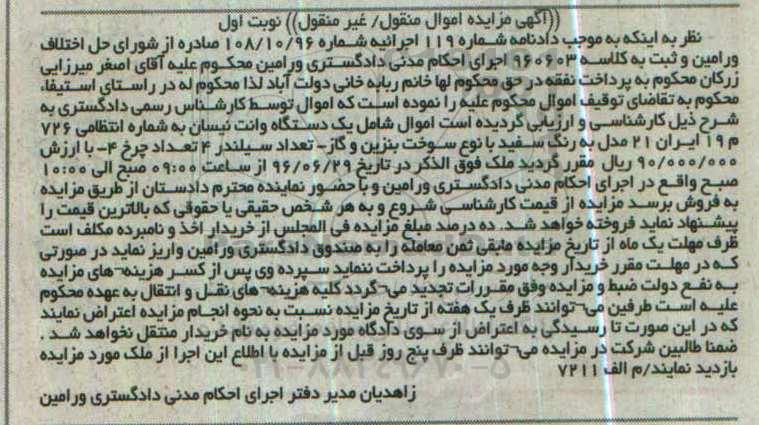 ((آگهی مزایده اموال منقول/ غیر منقول)) نوبت اول
نظر به اینکه به موجب دادنامه شماره ۱۱۹ اجرائیه شماره ۱۰۸/۱۰/۹۶ صادره از شورای حل اختلاف
ورامین و ثبت به کلاسه ۹۶۰۶۰۳ اجرای احکام مدنی دادگستری ورامین محکوم علیه آقای اصغر میرزایی
زرکان محکوم به پرداخت نفقه در حق محکوم لها خانم ربابه خانی دولت آباد لذا محکوم له در راستای استیفاء
محکوم به تقاضای توقیف اموال محکوم علیه را نموده است که اموال توسط کارشناس رسمی دادگستری به
شرح ذیل کارشناسی و ارزیابی گردیده است اموال شامل یک دستگاه وانت نیسان به شماره انتظامی ۷۲۶
م ۱۹ ایران ۲۱ مدل به رنگ سفید با نوع سوخت بنزین و گاز- تعداد سیلندر ۴ تعداد چرخ ۴- با ارزش
۹۰/۰۰۰/۰۰۰ ریال مقرر گردید ملک فوق الذکر در تاریخ ۹۶/۰۶/۲۹ از ساعت ۰۹:۰۰ صبح الی ۱۰:۰۰
صبح واقع در اجرای احکام مدنی دادگستری ورامین و با حضور نماینده محترم دادستان از طریق مزایده
به فروش برسد مزایده از قیمت کارشناسی شروع و به هر شخص حقیقی یا حقوقی که بالاترین قیمت را
پیشنهاد نماید فروخته خواهد شد. ده درصد مبلغ مزایده فی المجلس از خریدار اخذ و نامبرده مکلف است
ظرف مهلت یک ماه از تاریخ مزایده مابقی ثمن معامله را به صندوق دادگستری ورامین واریز نماید در صورتی
که در مهلت مقرر خریدار وجه مورد مزایده را پرداخت ننماید سپرده وی پس از کسر هزینه¬های مزایده
به نفع دولت ضبط و مزایده وفق مقررات تجدید می¬گردد کلیه هزینه¬های نقل و انتقال به عهده محکوم
علیه است طرفین می¬توانند ظرف یک هفته از تاریخ مزایده نسبت به نحوه انجام مزایده اعتراض نمایند
که در این صورت تا رسیدگی به اعتراض از سوی دادگاه مورد مزایده به نام خریدار منتقل نخواهد شد .
ضمنا طالبین شرکت در مزایده می¬توانند ظرف پنج روز قبل از مزایده با اطلاع این اجرا از ملک مورد مزایده
بازدید نمایند/م الف ۷۲۱۱
۰۲۱-۸۸۳۴۹۶۷۰-۵
زاهدیان مدیر دفتر اجرای احکام مدنی دادگستری ورامین